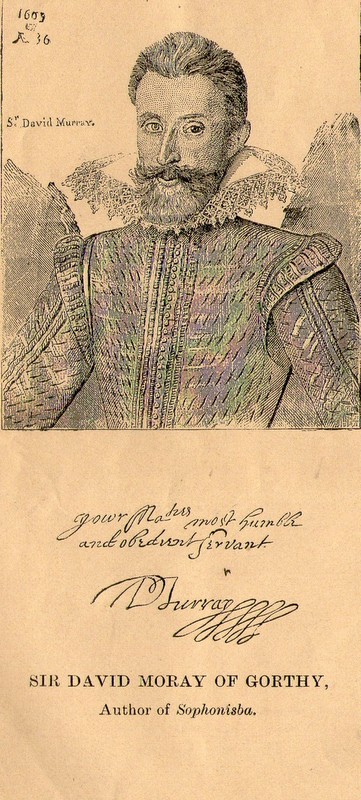 1603
Æ 36
Sr. David Murray.
your Maties most humble
and obedient servant
DMurray
SIR DAVID MORAY OF GORTHY,
Author of Sophonisba.